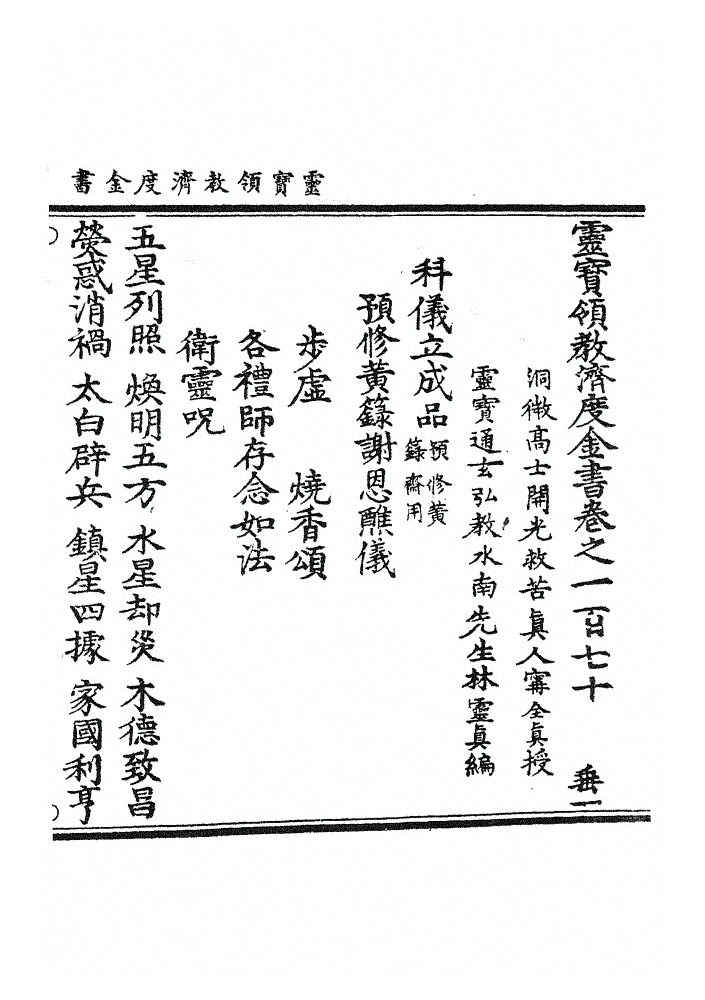 靈寶領教濟度金書
靈寶領教濟度金書卷之一百七十 垂一
洞微高士開光救苦真人寗全真授
靈寶通玄弘教水南先生林靈真編
科儀立成品預修黃籙齋用
預修黃籙謝恩醮儀
步虛 燒香頌
各禮師存念如法
衛靈呪
五星列照 煥明五方 水星却災 木德致昌
熒惑消禍 太白辟兵 鎮星四據 家國利亨